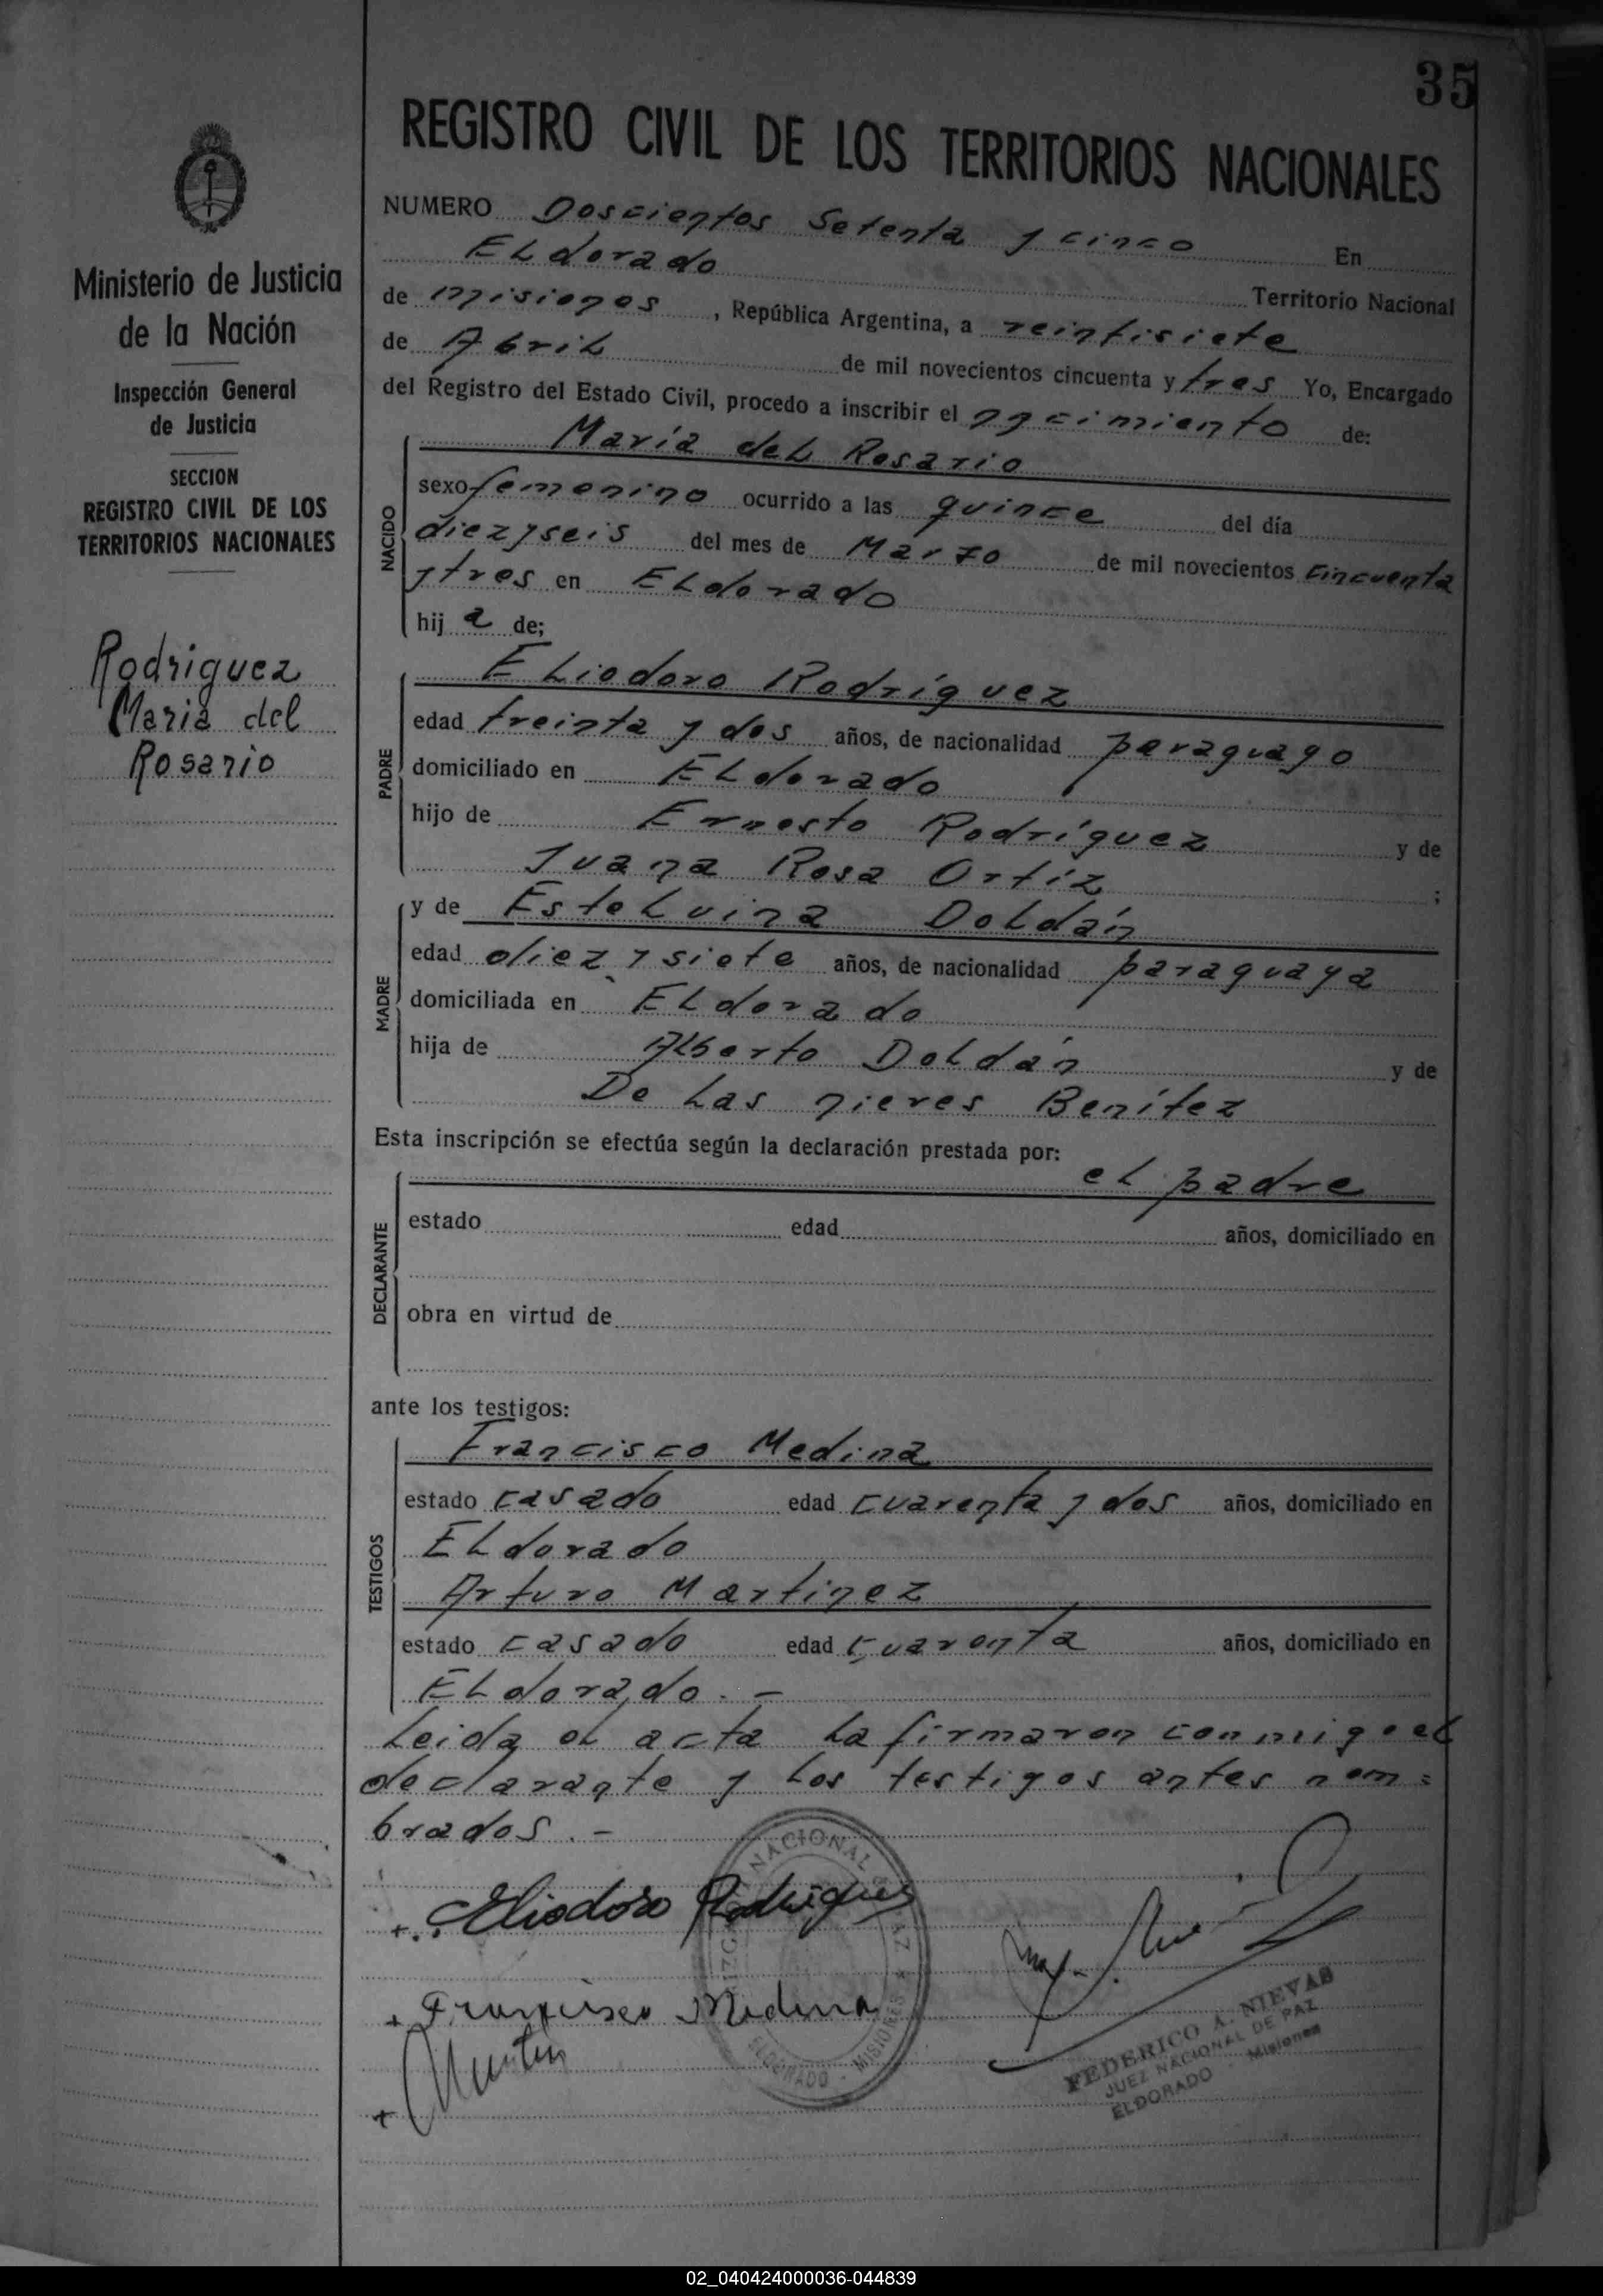 35
REGISTRO CIVIL DE LOS TERRITORIOS NACIONALES
Ministerio de Justicia
de la Nación
Inspección General
de Justicia
SECCION
REGISTRO CIVIL DE LOS
TERRITORIOS NACIONALES
Rodriguez
Maria del
Rosario
NUMERO Doscientos Setenta y cinco En
Eldorado Territorio Nacional
de misiones, República Argentina, a veintisiete
de Abril de mil novecientos cincuenta y tres Yo, Encargado
del Registro del Estado Civil, procedo a inscribir el nacimiento de:
NACIDO
María del Rosario
sexo femenino ocurrido a las quince del día
diez y seis del mes de Marzo de mil novecientos cincuenta
y tres en Eldorado
hij a de;
PADRE
Eliodoro Rodríguez
edad treinta y dos años, de nacionalidad paraguayo
domiciliado en Eldorado
hijo de Ernesto Rodríguez y de
Juana Rosa Ortíz ;
MADRE
y de Estelvina Doldán
edad diez y siete años, de nacionalidad paraguaya
domiciliada en Eldorado
hija de Alberto Doldán y de
De Las nieves Benítez
Esta inscripción se efectúa según la declaración prestada por:
DECLARANTE
el padre
estado edad años, domiciliado en
obra en virtud de
ante los testigos:
TESTIGOS
Francisco Medina
estado casado edad cuarenta y dos años, domiciliado en
Eldorado
Arturo Martinez
estado casado edad cuarenta años, domiciliado en
Eldorado. -
Leida el acta la firmaron conmigo el
declarante y los testigos antes nom=
brados. -
+ Eliodoro Rodriguez
+ Francisco Medina
+
NACIONAL PAZ
ELDORADO - MISIONES
FEDERICO A. NIEVAS
JUEZ NACIONAL DE PAZ
ELDORADO Misiones
02_040424000036-044839